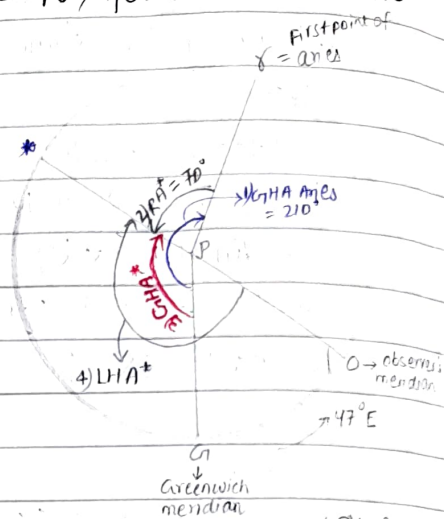 First point of
♈ = aries
*
2) RA* = 70°
1) GHA Aries
= 210°
P
3) GHA*
4) LHA*
O → observer's
meridian
47°E
G
↓
Greenwich
meridian